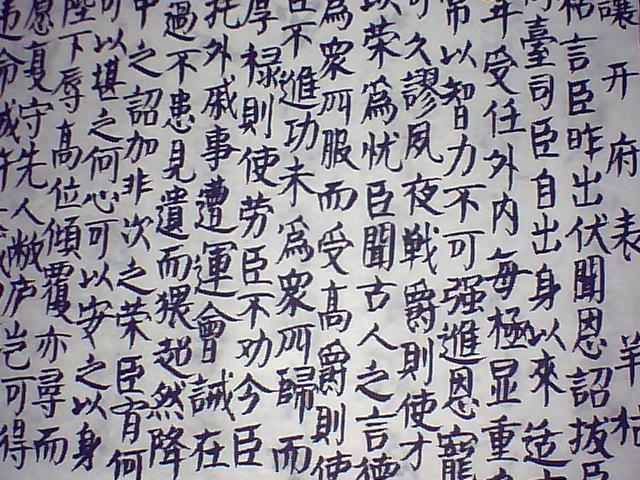 讓开府表 羊祜
祜言臣昨出伏聞恩詔拔臣
臺司臣自出身以来适
年受任外内每極显重
常以智力不可强進恩寵
可久謬夙夜戰爵則使才
以荣為忧臣聞古人之言德
為衆所服而受高爵則使
臣不進功未為衆所歸而
厚禄則使劳臣不劝今臣
托外戚事遭運會誡在
過不患見遺而猥超然降
中之詔加非次之荣臣有何
可以堪之何心可以安之以身
陛下辱高位傾覆亦尋而
愿復守先人敝庐岂可得